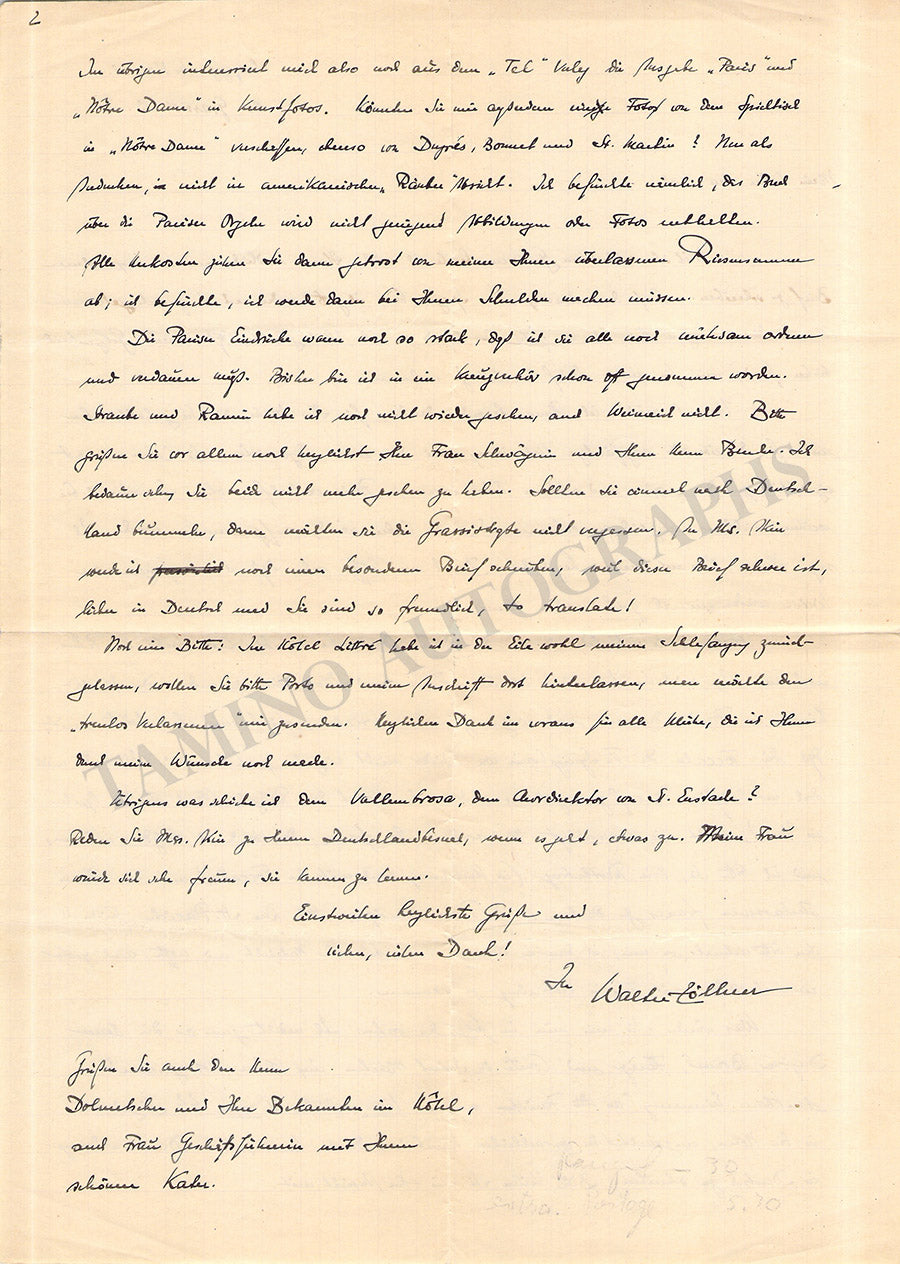 2
Im übrigen interessiert mich also noch aus dem „Tel“ Verlag die Ausgabe „Paris“ und
„Nôtre Dame“ in Kunstfotos. Könnten Sie mir außerdem einige Fotos von dem Spieltisch
in „Nôtre Dame“ verschaffen, ebenso von Dupré, Bonnet und St. Martin? Nur als
Andenken, nicht in amerikanischer „Räuber“absicht. Ich befürchte nämlich, das Buch
über die Pariser Orgeln wird nicht genügend Abbildungen oder Fotos enthalten.
Alle Unkosten ziehen Sie dann getrost von meiner Ihnen überlassenen Riesensumme
ab; ich befürchte, ich werde dann bei Ihnen Schulden machen müssen.
Die Pariser Eindrücke waren noch so stark, daß ich sie alle noch mühsam ordnen
und verdauen muß. Bisher bin ich in ein Kreuzverhör schon oft genommen worden.
Straube und Ramin habe ich noch nicht wieder gesehen, auch Weinreich nicht. Bitte
grüßen Sie vor allem noch herzlichst Ihre Frau Schwägerin und Ihren Herrn Bruder. Ich
bedaure sehr, Sie beide nicht mehr gesehen zu haben. Sollten sie einmal nach Deutsch-
land bummeln, dann müßten sie die Grassistraße nicht vergessen. An Mrs.
werde ich noch einen besonderen Brief schreiben, weil dieser Brief schwer ist,
leider in Deutsch und Sie sind so freundlich, to translate!
Noch eine Bitte: Im Hôtel Littré habe ich in der Eile wohl meinen Schlafanzug zurück-
gelassen, wollen Sie bitte Porto und meine Anschrift dort hinterlassen, man möchte den
„treulos Verlassenen“ mir zusenden. Herzlichen Dank im voraus für alle Mühe, die ich Ihnen
durch meine Wünsche noch mache.
Übrigens was schicke ich dem Vallombrosa, dem Chordirektor von St. Eustache?
Reden Sie Mrs. zu Ihrem Deutschlandbesuch, wenn es geht, etwas zu. Meine Frau
würde sich sehr freuen, sie kennen zu lernen.
Einstweilen herzlichste Grüße und
vielen, vielen Dank!
Ihr Walter Zöllner
Grüßen Sie auch den Herrn
Dolmetscher und Ihre Bekannten im Hôtel,
auch Frau Geschäftsführerin mit Ihrem
schönen Kater.
30
extra. Postage 5.30
TAMINO AUTOGRAPHS